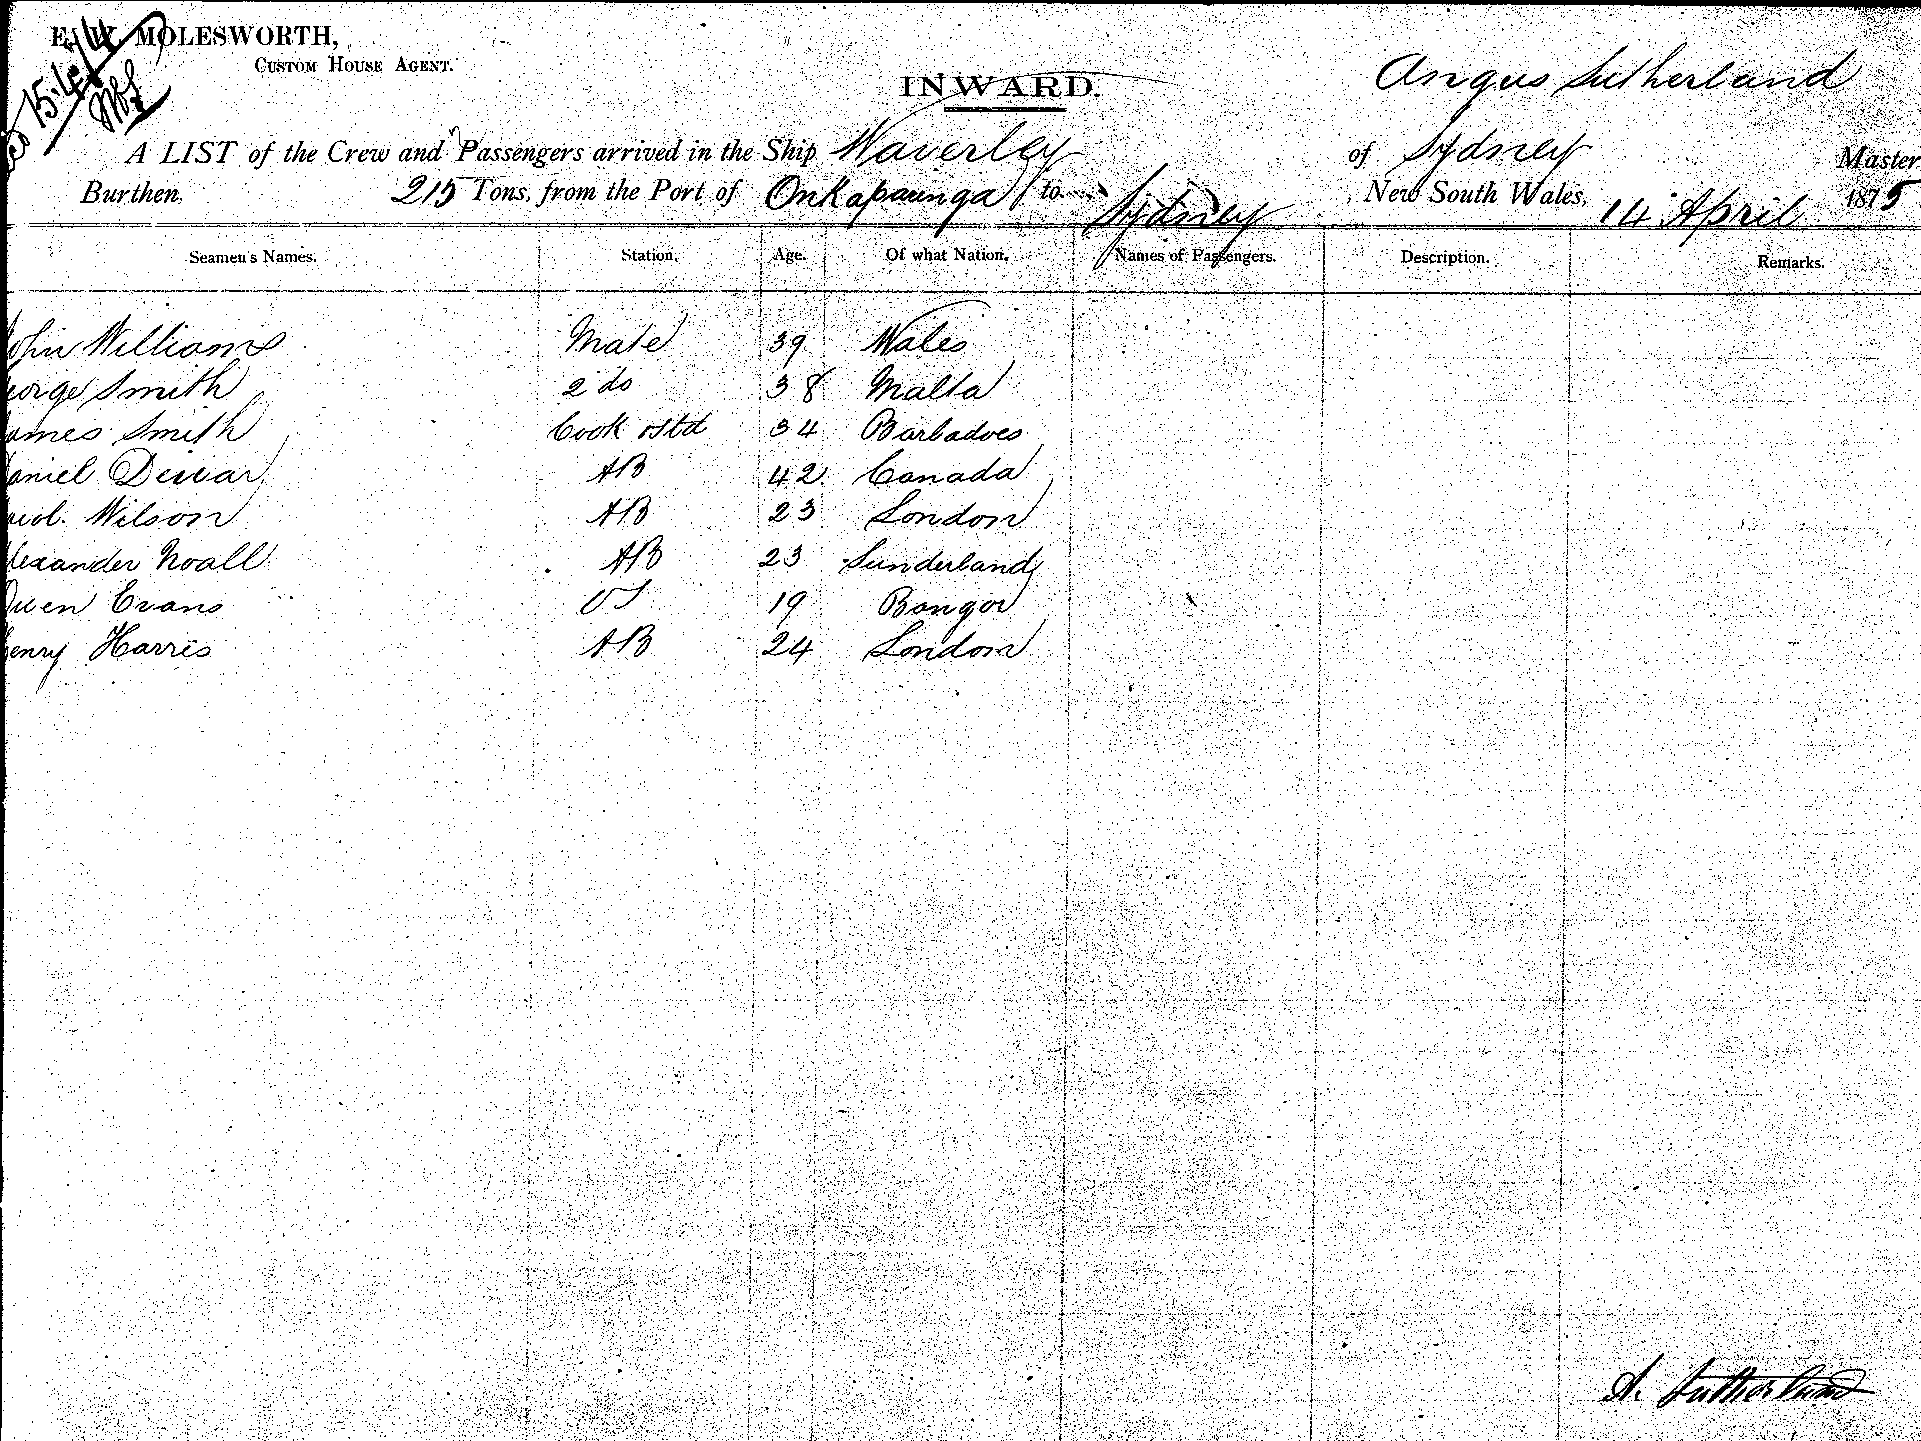 E. W. MOLESWORTH,
CUSTOM HOUSE AGENT.
15.4/4
INWARD.
Angus Sutherland
A LIST of the Crew and Passengers arrived in the Ship Waverley of Sydney Master
Burthen, 215 Tons, from the Port of Onkapaunga to Sydney, New South Wales, 14 April 1875
Seamen's Names. Station. Age. Of what Nation. Names of Passengers. Description. Remarks.
ohn Williams Mate 39 Wales
eorge Smith 2 do 38 Malta
ames Smith Cook & Std 34 Barbadoes
aniel Dewar AB 42 Canada
Wilson AB 23 London
lexander Noall AB 23 Sunderland
Owen Evans OS 19 Bangor
enry Harris AB 24 London
A. Sutherland